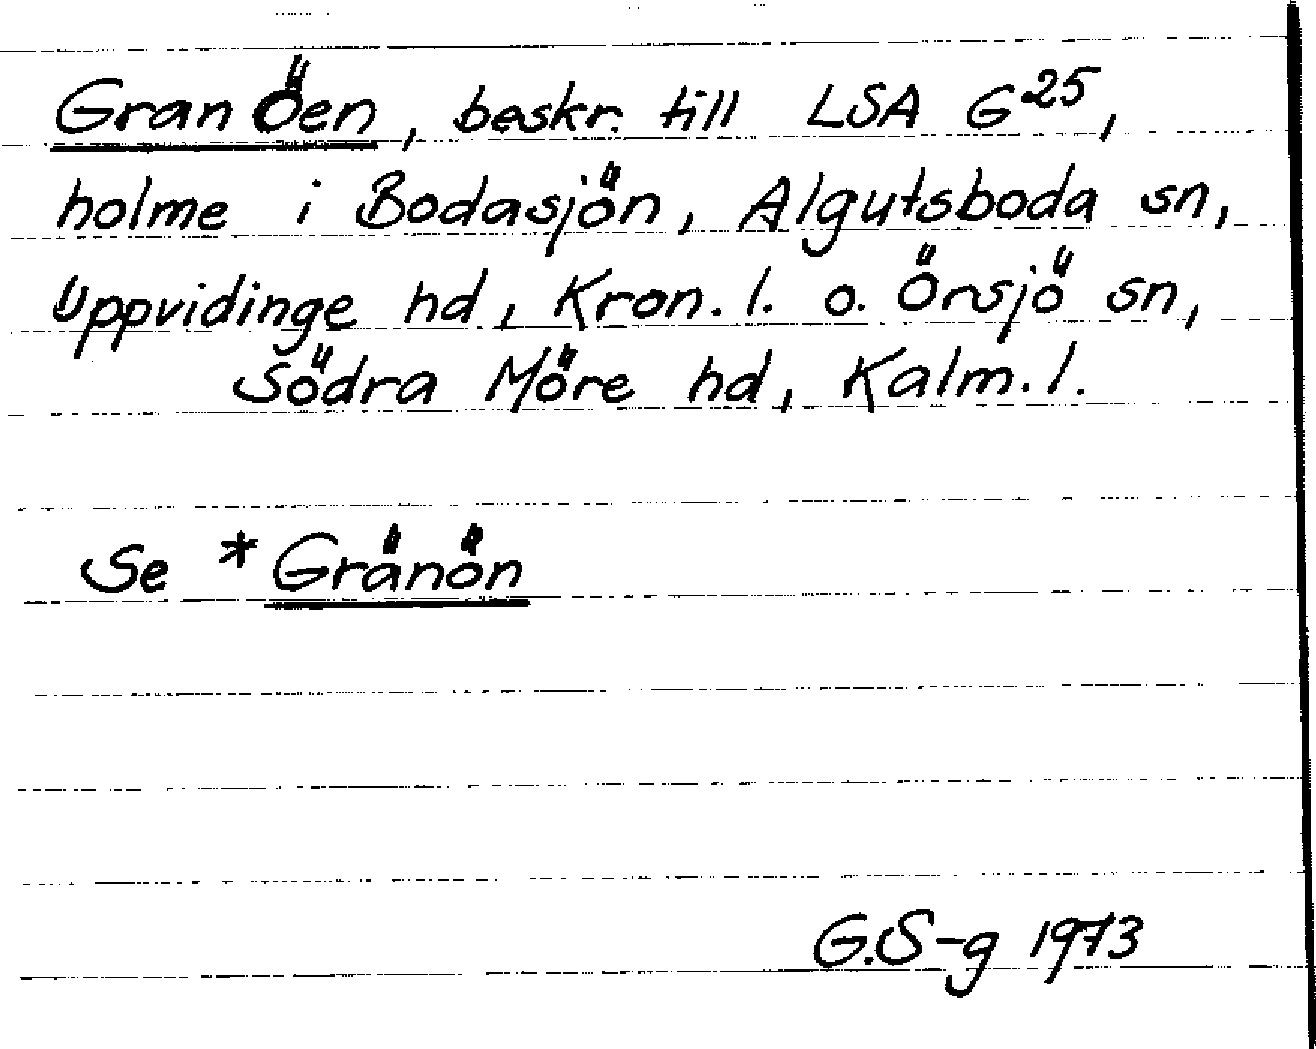 Gran Öen, beskr. till LSA G25,
holme i Bodasjön, Algutsboda sn,
Uppvidinge hd, Kron. l. o. Örsjö sn,
Södra Möre hd, Kalm. l.
Se *Gränön
G.S-g 1973